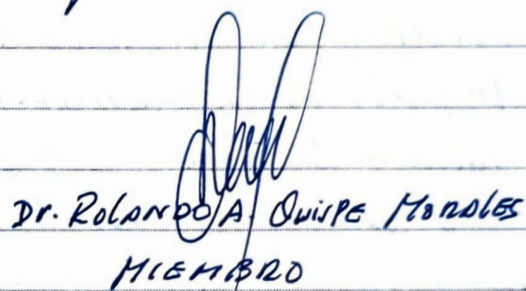 Dr. ROLANDO A. QUISPE MORALES
MIEMBRO